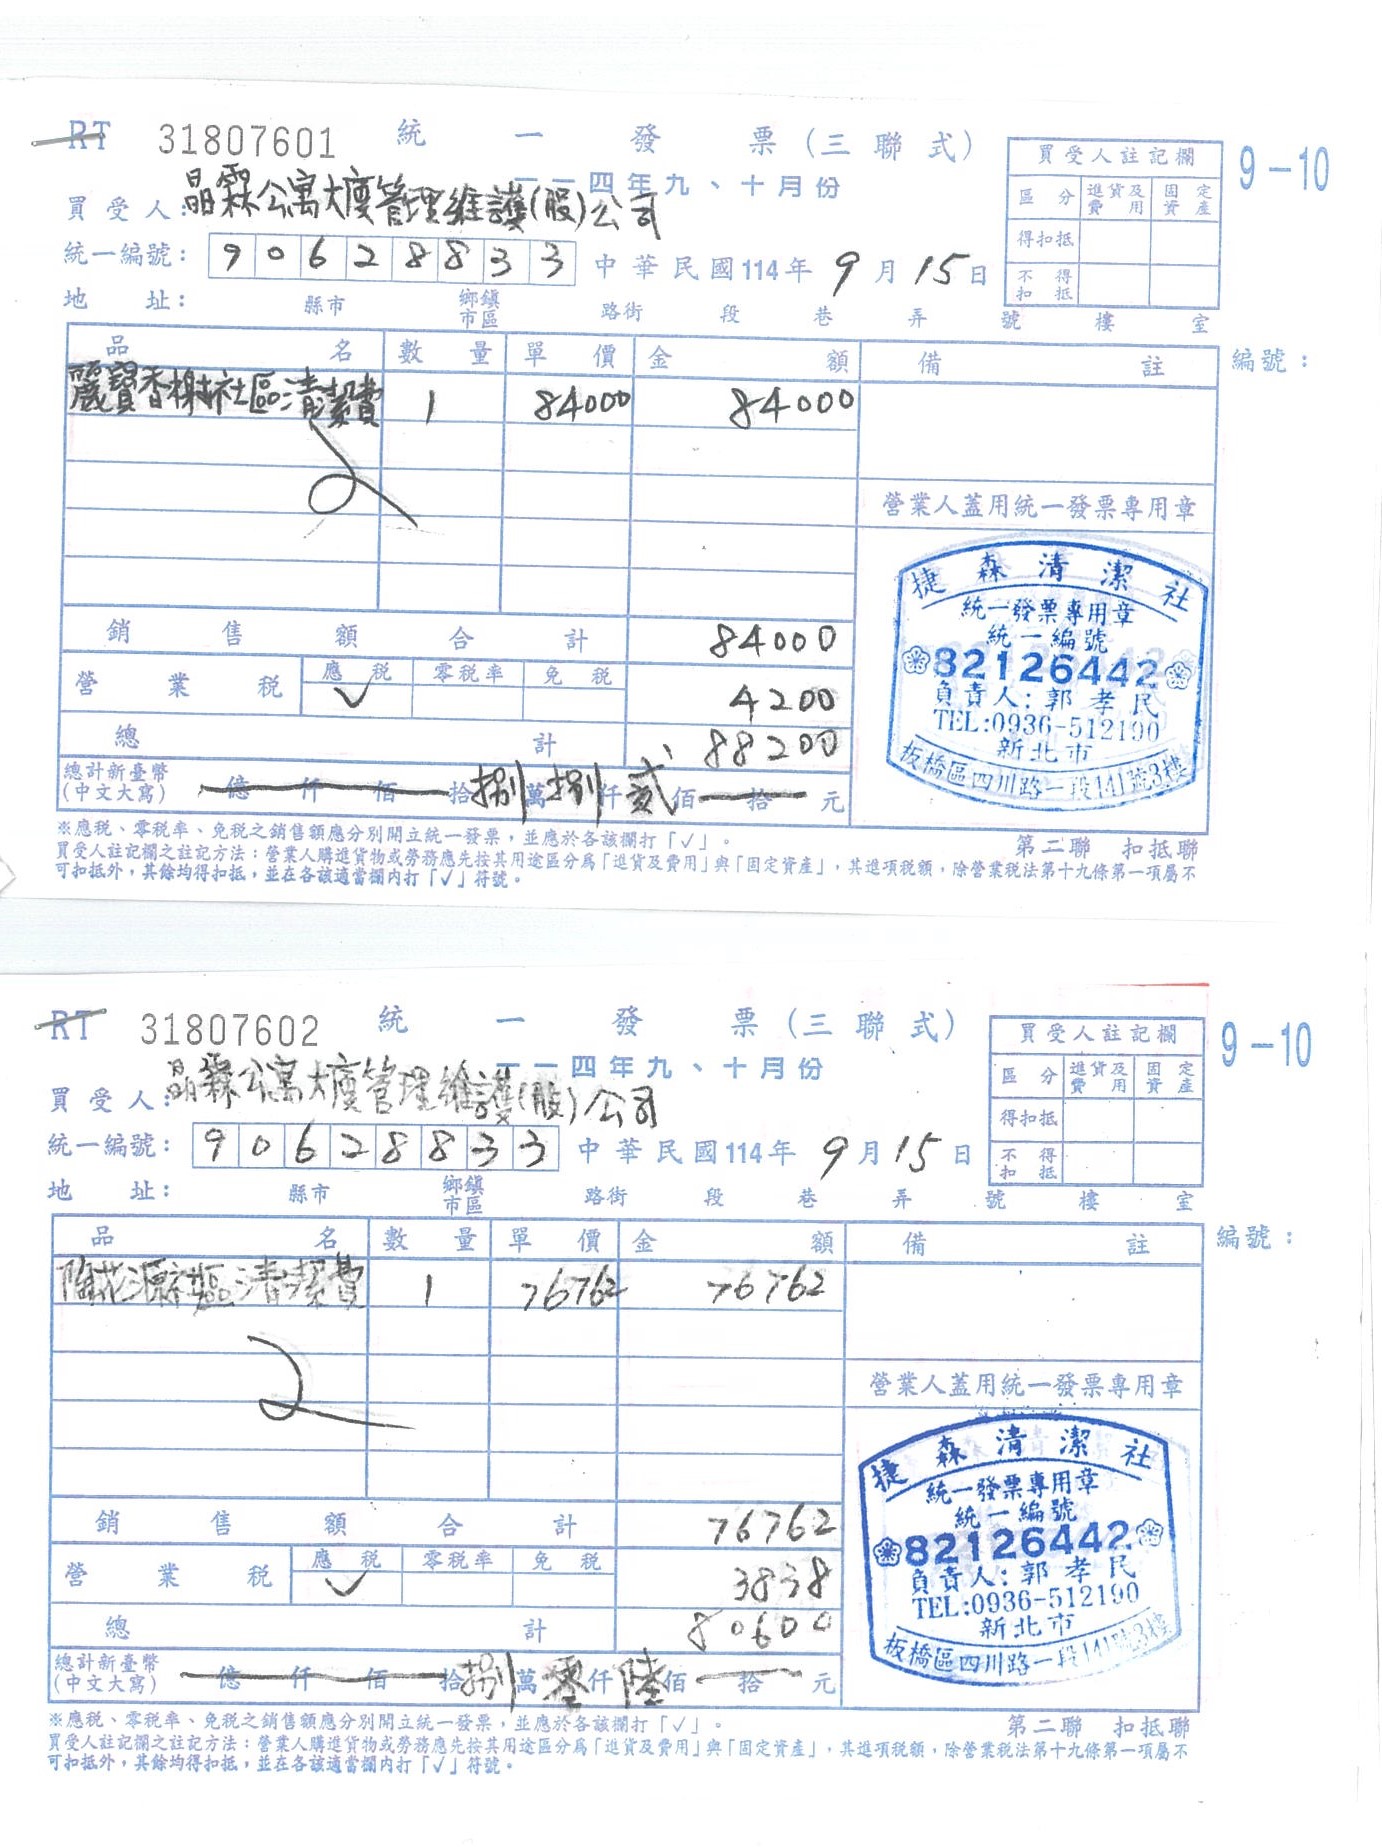 RT 31807601 統一發票(三聯式)
一一四年九、十月份
9-10
買受人:晶霖公寓大廈管理維護(股)公司
統一編號: 90628833 中華民國114年9月15日
地址: 縣市 鄉鎮市區 路街 段 巷 弄 號 樓 室
買受人註記欄
區分 進貨及費用 固定資產
得扣抵
不得扣抵
品名 數量 單價 金額 備註 編號:
麗寶香榭社區清潔費 1 84000 84000
營業人蓋用統一發票專用章
捷森清潔社
統一發票專用章
統一編號
82126442
負責人:郭孝民
TEL:0936-512190
新北市
板橋區四川路一段141號3樓
銷售額合計 84000
營業稅 應稅 ✓ 零稅率 免稅 4200
總計 88200
總計新臺幣(中文大寫) 億 仟 佰 拾捌萬捌仟貳佰 拾 元
※應稅、零稅率、免稅之銷售額應分別開立統一發票,並應於各該欄打「✓」。
第二聯 扣抵聯
買受人註記欄之註記方法:營業人購進貨物或勞務應先按其用途區分為「進貨及費用」與「固定資產」,其進項稅額,除營業稅法第十九條第一項屬不
可扣抵外,其餘均得扣抵,並在各該適當欄內打「✓」符號。
RT 31807602 統一發票(三聯式)
一一四年九、十月份
9-10
買受人:晶霖公寓大廈管理維護(股)公司
統一編號: 90628833 中華民國114年9月15日
地址: 縣市 鄉鎮市區 路街 段 巷 弄 號 樓 室
買受人註記欄
區分 進貨及費用 固定資產
得扣抵
不得扣抵
品名 數量 單價 金額 備註 編號:
陶花源社區清潔費 1 76762 76762
營業人蓋用統一發票專用章
捷森清潔社
統一發票專用章
統一編號
82126442
負責人:郭孝民
TEL:0936-512190
新北市
板橋區四川路一段141號3樓
銷售額合計 76762
營業稅 應稅 ✓ 零稅率 免稅 3838
總計 80600
總計新臺幣(中文大寫) 億 仟 佰 拾捌萬零仟陸佰 拾 元
※應稅、零稅率、免稅之銷售額應分別開立統一發票,並應於各該欄打「✓」。
第二聯 扣抵聯
買受人註記欄之註記方法:營業人購進貨物或勞務應先按其用途區分為「進貨及費用」與「固定資產」,其進項稅額,除營業稅法第十九條第一項屬不
可扣抵外,其餘均得扣抵,並在各該適當欄內打「✓」符號。